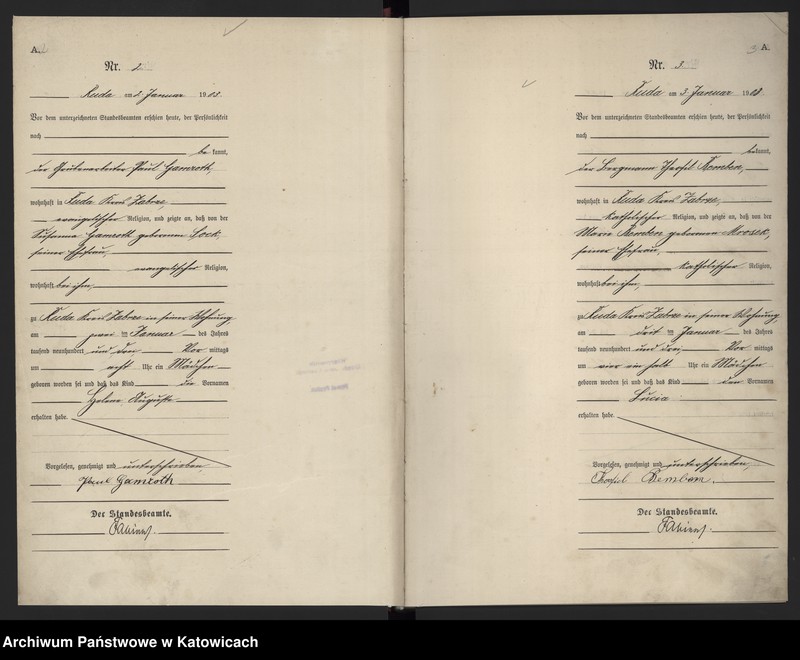 A.
Nr. 2.
Ruda am 2. Januar 1903
Vor dem unterzeichneten Standesbeamten erschien heute, der Persönlichkeit
nach
be kannt,
der Grubenarbeiter Paul Gamroth,
wohnhaft in Ruda Kreis Zabrze,
evangelischer Religion, und zeigte an, daß von der
Susanna Gamroth geborenen
seiner Ehefrau,
evangelischer Religion,
wohnhaft bei ihm,
zu Ruda Kreis Zabrze in seiner Wohnung
am zwei ten Januar des Jahres
tausend neunhundert und drei Vor mittags
um acht Uhr ein Mädchen
geboren worden sei und daß das Kind die Vornamen
Helene Auguste
erhalten habe.
Vorgelesen, genehmigt und unterschrieben
Paul Gamroth
Der Standesbeamte.
3 A.
Nr. 3.
Ruda am 3. Januar 1903
Vor dem unterzeichneten Standesbeamten erschien heute, der Persönlichkeit
nach
bekannt,
der Bergmann
wohnhaft in Ruda Kreis Zabrze,
katholischer Religion, und zeigte an, daß von der
Marie geborenen
seiner Ehefrau,
katholischer Religion,
wohnhaft bei ihm,
zu Ruda Kreis Zabrze in seiner Wohnung
am drit ten Januar des Jahres
tausend neunhundert und drei, Vor mittags
um vier ein halb Uhr ein Mädchen
geboren worden sei und daß das Kind den Vornamen
Lucia
erhalten habe.
Vorgelesen, genehmigt und unterschrieben,
Der Standesbeamte.
Archiwum Państwowe w Katowicach